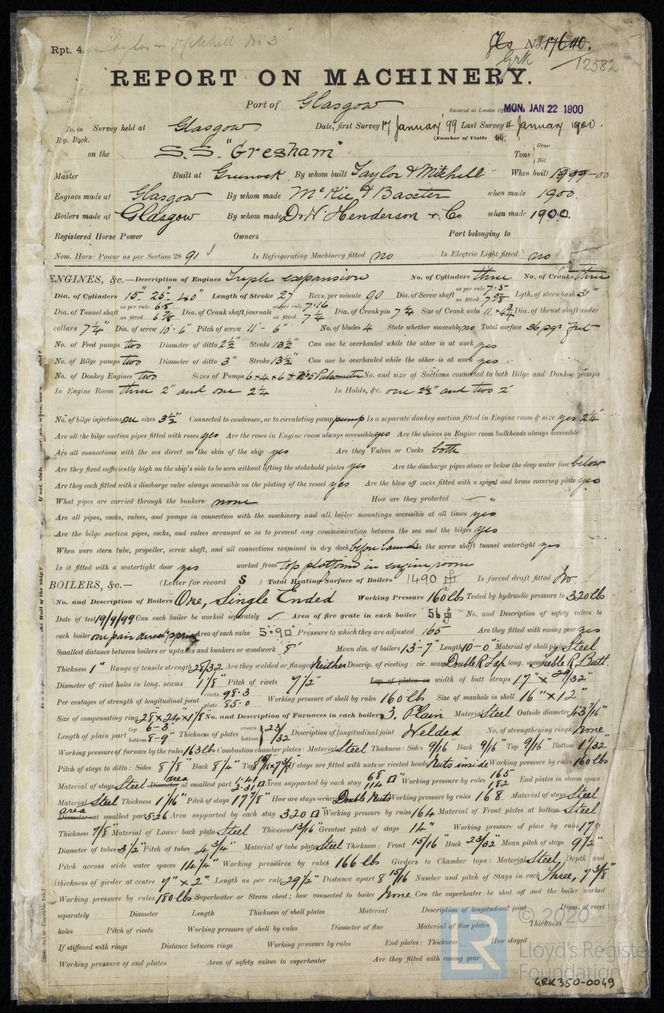 Rpt. 4.
Gls No. 17640.
Grk 12582
REPORT ON MACHINERY.
Port of Glasgow
Received at London Office MON. JAN 22 1900
No. in Survey held at Glasgow Date, first Survey 17 January '99 Last Survey 4 January 1900.
Reg. Book. (Number of Visits
on the S.S. "Gresham" Tons Gross Net
Master Built at Greenock By whom built Taylor & Mitchell When built 1899-00
Engines made at Glasgow By whom made McKie & Baxter when made 1900.
Boilers made at Glasgow By whom made D & W Henderson & Co when made 1900
Registered Horse Power Owners Port belonging to
Nom. Horse Power as per Section 28 91 Is Refrigerating Machinery fitted no Is Electric Light fitted no
ENGINES, &c.—Description of Engines Triple expansion No. of Cylinders three No. of Cranks three
Dia. of Cylinders 15" 25" 40" Length of Stroke 27 Revs. per minute 90 Dia. of Screw shaft as per rule 7.5 as fitted 7 5/8 Lgth. of stern bush 31"
Dia. of Tunnel shaft as per rule as fitted Dia. of Crank shaft journals as per rule 7.16 as fitted 7 1/4 Dia. of Crank pin 7 1/4 Size of Crank webs Dia. of thrust shaft under
collars 7 1/4" Dia. of screw 10'-6" Pitch of screw 11'-6" No. of blades 4 State whether moveable no Total surface 36 sqr feet
No. of Feed pumps two Diameter of ditto 2 1/2 Stroke 13 1/2 Can one be overhauled while the other is at work yes
No. of Bilge pumps two Diameter of ditto 3" Stroke 13 1/2 Can one be overhauled while the other is at work yes
No. of Donkey Engines two Sizes of Pumps 6×4×6 & Pulsometer No. and size of Suctions connected to both Bilge and Donkey pumps
In Engine Room three 2" and one 2 1/4 In Holds, &c. one 2 1/2 and two 2"
No. of bilge injections one sizes 3 1/2" Connected to condenser, or to circulating pump pump Is a separate donkey suction fitted in Engine room & size yes 2 1/4"
Are all the bilge suction pipes fitted with roses yes Are the roses in Engine room always accessible yes Are the sluices on Engine room bulkheads always accessible
Are all connections with the sea direct on the skin of the ship yes Are they Valves or Cocks both
Are they fixed sufficiently high on the ship's side to be seen without lifting the stokehold plates yes Are the discharge pipes above or below the deep water line below
Are they each fitted with a discharge valve always accessible on the plating of the vessel yes Are the blow off cocks fitted with a spigot and brass covering plate yes
What pipes are carried through the bunkers none How are they protected
Are all pipes, cocks, valves, and pumps in connection with the machinery and all boiler mountings accessible at all times yes
Are the bilge suction pipes, cocks, and valves arranged so as to prevent any communication between the sea and the bilges yes
When were stern tube, propeller, screw shaft, and all connections examined in dry dock before launch Is the screw shaft tunnel watertight yes
Is it fitted with a watertight door yes worked from top platform in engine room
BOILERS, &c.— (Letter for record S) Total Heating Surface of Boilers 1490 Is forced draft fitted No
No. and Description of Boilers One, Single Ended Working Pressure 160 lbs Tested by hydraulic pressure to 320 lbs
Date of test 19/9/99 Can each boiler be worked separately ✓ Area of fire grate in each boiler 56 No. and Description of safety valves to
each boiler one pair direct spring Area of each valve 5.9 Pressure to which they are adjusted 165 Are they fitted with easing gear yes
Smallest distance between boilers or uptakes and bunkers or woodwork 8" Mean dia. of boilers 13-7" Length 10-0" Material of shell plates Steel
Thickness 1" Range of tensile strength 28/32 Are they welded or flanged Neither Descrip. of riveting: cir. seams Double R Lap long. seams Double R Butt
Diameter of rivet holes in long. seams 1 1/8" Pitch of rivets 7 1/2" Lap of plates or width of butt straps 17" ×
Per centages of strength of longitudinal joint rivets 98.3 plate 85.0 Working pressure of shell by rules 160 lbs Size of manhole in shell 16" × 12"
Size of compensating ring 28×24×1 1/8 No. and Description of Furnaces in each boiler 3. Plain Material Steel Outside diameter 43 7/16"
Length of plain part top 6-3" bottom 8-9" Thickness of plates crown bottom 23/32 Description of longitudinal joint Welded No. of strengthening rings None
Working pressure of furnace by the rules 163 lbs Combustion chamber plates: Material Steel Thickness: Sides 9/16 Back 9/16 Top 9/16 Bottom 1 1/32
Pitch of stays to ditto: Sides 8 1/8" Back 8 1/4" Top If stays are fitted with nuts or riveted heads Nuts inside Working pressure by rules 160 lbs
Material of stays Steel area at smallest part Area supported by each stay Working pressure by rules 165 182 End plates in steam space:
Material Steel Thickness 1 1/16" Pitch of stays 17 7/8" How are stays secured Double Nuts Working pressure by rules 168 Material of stays Steel
area at smallest part 5.36 Area supported by each stay 320 Working pressure by rules 164 Material of Front plates at bottom Steel
Thickness 7/8" Material of Lower back plate Steel Thickness 13/16" Greatest pitch of stays 14" Working pressure of plate by rules 178
Diameter of tubes 3 1/2" Pitch of tubes 4 3/4" Material of tube plates Steel Thickness: Front 15/16" Back 23/32 Mean pitch of stays 9 1/2"
Pitch across wide water spaces 14 1/4" Working pressures by rules 166 lbs Girders to Chamber tops: Material Steel, Depth and
thickness of girder at centre 7" × 2" Length as per rule 29 1/2" Distance apart 8 15/16 Number and pitch of Stays in each Three, 7 3/8"
Working pressure by rules 180 lbs Superheater or Steam chest; how connected to boiler None Can the superheater be shut off and the boiler worked
separately Diameter Length Thickness of shell plates Material Description of longitudinal joint Diam. of rivet
holes Pitch of rivets Working pressure of shell by rules Diameter of flue Material of flue plates Thickness
If stiffened with rings Distance between rings Working pressure by rules End plates: Thickness How stayed
Working pressure of end plates Area of safety valves to superheater Are they fitted with easing gear
© 2020
LR
Lloyd's Register
Foundation
GRK350-0049